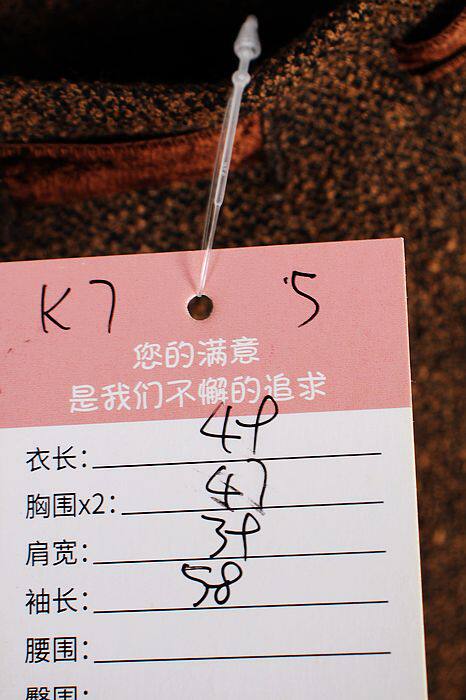 K7 5
您的满意
是我们不懈的追求
衣长: 49
胸围x2: 47
肩宽: 39
袖长: 58
腰围:
臀围: